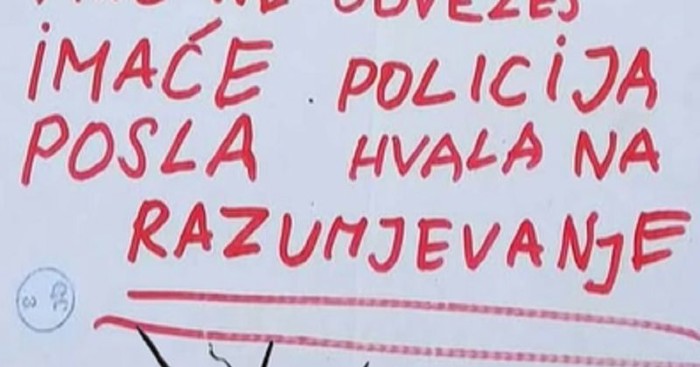 NE ODVEZEŠ
IMAĆE POLICIJA
POSLA HVALA NA
RAZUMJEVANJE